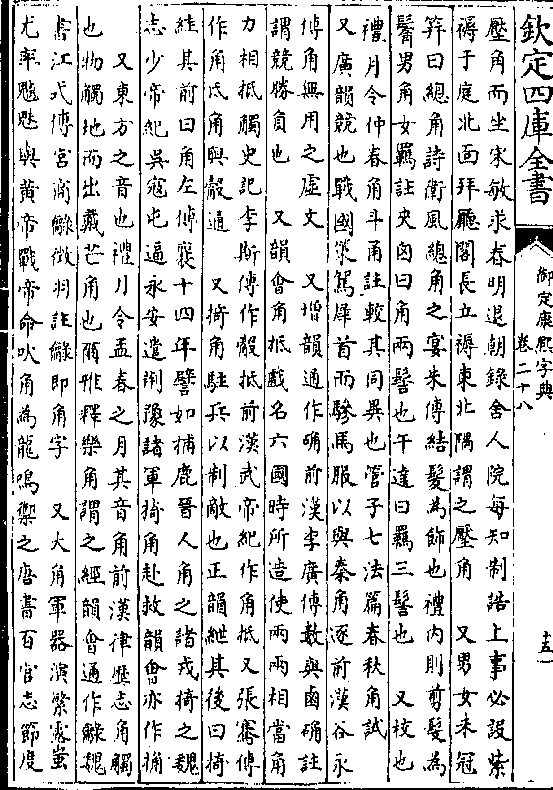 欽定四庫全書
御定康熙字典
卷二十八
壓角而坐宋敏求春明退朝錄舍人院每知制誥上事必設紫
褥于庭北面拜廳閣長立褥東北隅謂之壓角　又男女未冠
笄曰總角詩衛風總角之宴朱傳結髮為飾也禮內則剪髮為
鬌男角女羈註夾囟曰角兩髻也午達曰羈三髻也　又校也
禮月令仲春角斗甬註較其同異也管子七法篇春秋角試
又廣韻競也戰國策駕犀首而驂馬服以與秦角逐前漢谷永
傅角無用之虛文　又增韻通作确前漢李廣傳數與鹵确註
謂競勝負也　又韻會角抵戲名六國時所造使兩兩相當角
力相抵觸史記李斯傳作觳抵前漢武帝紀作角抵又張騫傳
作角氐角與觳通　又掎角駐兵以制敵也正韻紲其後曰掎
絓其前曰角左傳襄十四年譬如捕鹿晉人角之諸戎掎之魏
志少帝紀吳寇屯逼永安遣荆豫諸軍掎角赴救韻會亦作捔
又東方之音也禮月令孟春之月其音角前漢律歷志角觸
也物觸地而出戴芒角也爾雅釋樂角謂之經韻會通作䚡魏
書江式傳宮商䚡徵羽註䚡即角字　又大角軍器演繁露蚩
尤率魑魅與黄帝戰帝命吹角為龍鳴禦之唐書百官志節度
十五